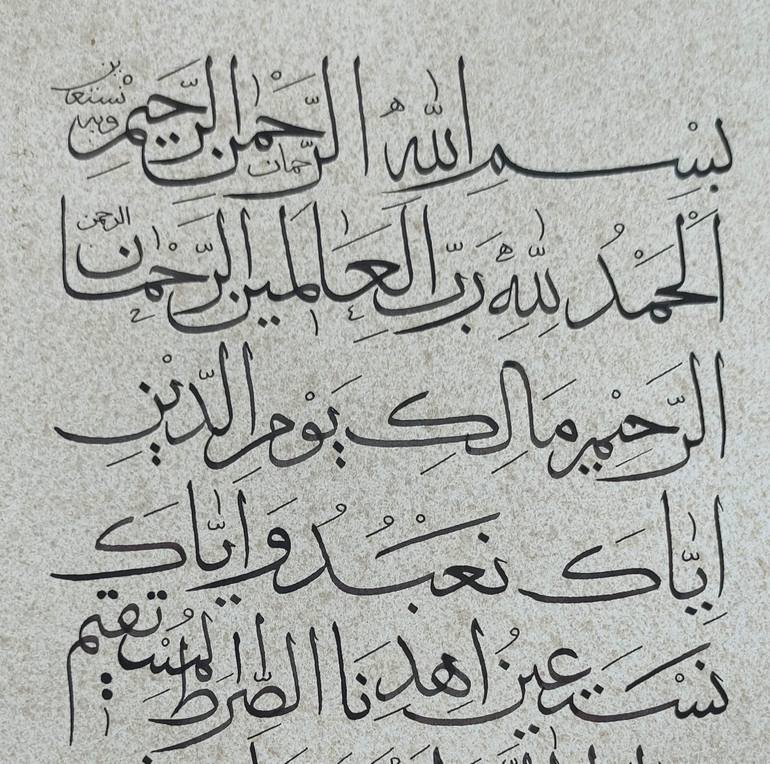 بِسْمِ اللّٰهِ الرَّحْمٰنِ الرَّحِيْمِ وبه نستعين
اَلْحَمْدُ لِلّٰهِ رَبِّ الْعَالَمِينَ الرَّحْمَانِ
الرَّحِيْمِ مَالِكِ يَوْمِ الدِّيْنِ
اِيَّاكَ نَعْبُدُ وَاِيَّاكَ
نَسْتَعِينُ اهْدِنَا الصِّرَاطَ الْمُسْتَقِيمَ